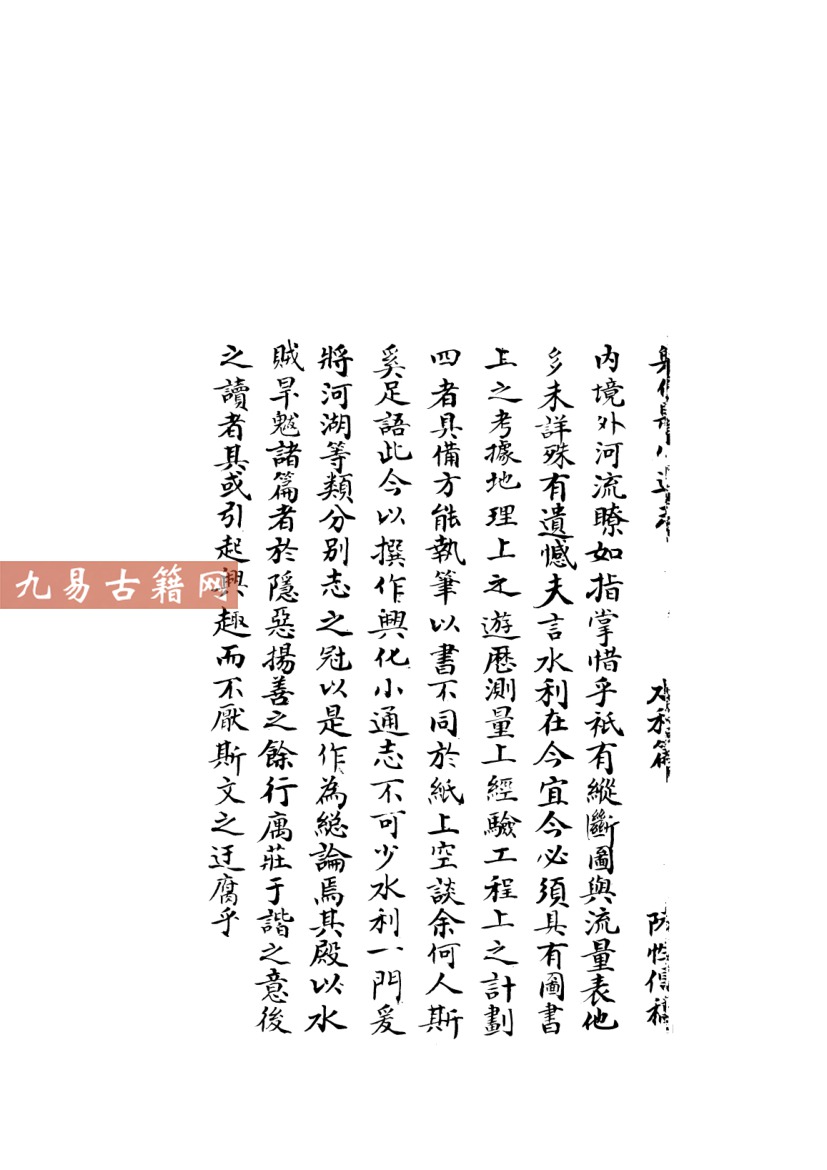 興化縣小通志
水利篇
內境外河流瞭如指掌惜乎祇有縱斷圖與流量表他
多未詳殊有遺憾夫言水利在今宜今必須具有圖書
上之考據地理上之遊歷測量上經驗工程上之計劃
四者具備方能執筆以書不同於紙上空談余何人斯
奚足語此今以撰作興化小通志不可少水利一門爰
將河湖等類分別志之冠以是作為總論焉其殿以水
賊旱魃諸篇者於隱惡揚善之餘行寓莊于諧之意後
之讀者其或引起興趣而不厭斯文之迂腐乎
九易古籍网